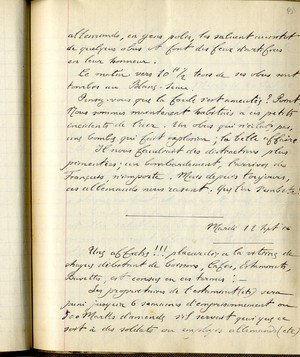 allemands, en gens polis, les saluent aussitot
de quelques obus et font des feux d'artifices
en leur honneur.
Ce matin vers 10 H 1/2 trois de ces obus sont
tombés au Blanc-
Pensez-vous que la foule s'est ameutée? Point
Nous sommes maintenant habitués à ces petits
incidents de Un obus qui n'éclate pas,
une bombe qui fait explosion, la belle affaire
Il nous faudrait des distractions plus
pimentées; un bombardement, l'arrivée des
Français, n'importe. Mais depuis toujours,
ces allemands nous rasent. Qu'on
Mardi 12 Sept
Une affiche!!! placardée à la vitrine de
chaque débitant de boissons, Cafés, Estaminets,
Buvettes, est conçue en ces termes:
Les propriétaires de l'estaminet (etc) sera
puni jusque 6 semaines d'emprisonnement ou
500 Marks d'amende s'il servent quoi que ce
soit à des soldats ou employés allemands (etc)